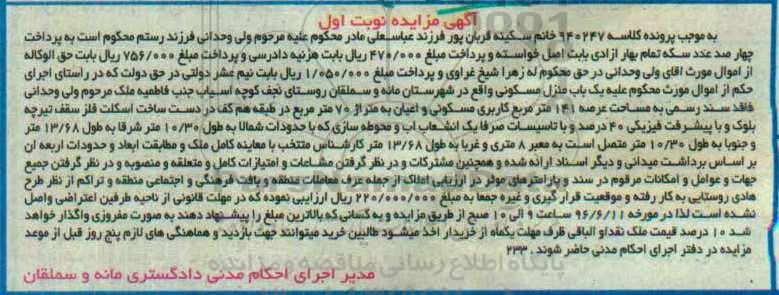 آگهی مزایده نوبت اول
به موجب پرونده کلاسه ۹۴۰۲۴۷ خانم سکینه قربان پور فرزند عباسعلی مادر محکوم علیه مرحوم ولی وحدانی فرزند رستم محکوم است به پرداخت
چهار صد عدد سکه تمام بهار ازادی بابت اصل خواسته و پرداخت مبلغ ۴۷۰/۰۰۰ ریال بابت هزنیه دادرسی و پرداخت مبلغ ۷۵۶/۰۰۰ ریال بابت حق الوکاله
از اموال مورث اقای ولی وحدانی در حق محکوم له زهرا شیخ غراوی و پرداخت مبلغ ۱/۰۵۰/۰۰۰ ریال بابت نیم عشر دولتی در حق دولت که در راستای اجرای
حکم از اموال مورث محکوم علیه یک باب منزل مسکونی واقع در شهرستان مانه و سملقان روستای نجف کوچه اسیاب جنب فاطمیه ملک مرحوم ولی وحدانی
فاقد سند رسمی به مساحت عرصه ۱۴۱ متر مربع کاربری مسکونی و اعیان به متراژ ۷۰ متر مربع در طبقه هم کف در دست ساخت اسکلت فلز سقف تیرچه
بلوک و با پیشرفت فیزیکی ۴۰ درصد و با تاسیسات صرفا یک انشعاب اب و محوطه سازی که با حدودات شمالا به طول ۱۰/۳۰ متر شرقا به طول ۱۳/۶۸ متر
و جنوبا به طول ۱۰/۳۰ متر متصل است به معبر ۸ متری و غربا به طول ۱۳/۶۸ متر کارشناس منتخب با معاینه کامل ملک و مطابقت ابعاد و حدودات اربعه ان
بر اساس برداشت میدانی و دیگر اسناد ارائه شده و همچنین مشترکات و در نظر گرفتن مشاعات و امتیازات کامل و متعلقه و منصوبه و در نظر گرفتن جمیع
جهات و عوامل و امکانات مرقوم در سند و پارامترهای موثر در ارزیابی املاک از جمله عرف معاملات منطقه و بافت فرهنگی و اجتماعی منطقه و تراکم از نظر طرح
هادی روستایی به کار رفته و موقعیت قرار گیری و غیره جمعا به مبلغ ۲۲۰/۰۰۰/۰۰۰ ریال ارزیابی نموده که در مهلت قانونی از ناحیه طرفین اعتراضی واصل
نشده است لذا در مورخه ۹۶/۶/۱۱ ساعت ۹ الی ۱۰ صبح از طریق مزایده و به کسانی که بالاترین مبلغ را پیشنهاد دهند به صورت مفروزی واگذار خواهد
شد ۱۰ درصد قیمت ملک نقدا و الباقی ظرف مهلت یکماه از خریدار اخذ میشود طالبین خرید میتوانند جهت بازدید و هماهنگی های لازم پنج روز قبل از موعد
مزایده در دفتر اجرای احکام مدنی حاضر شوند . ۲۳۳
پایگاه اطلاع رسانی مناقصه و مزایده
مدیر اجرای احکام مدنی دادگستری مانه و سملقان